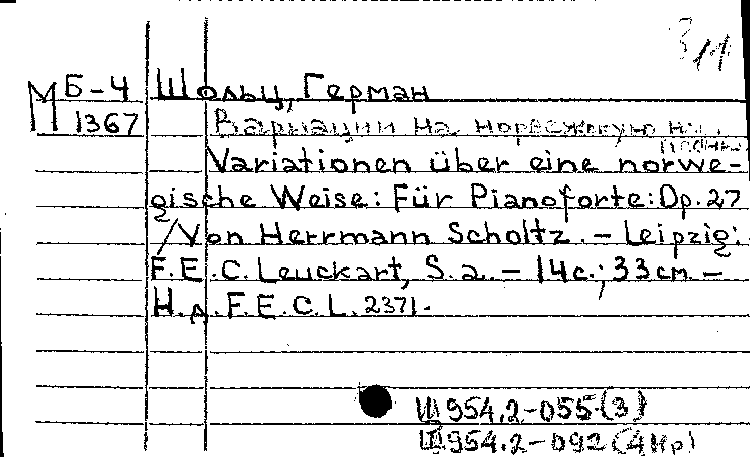 З 11
М Б-4 Шольц, Герман
1367 Вариации на норвежскую
Variationen über eine norwe-
gische Weise: Für Pianoforte: Op. 27
/ Von Herrmann Scholtz. – Leipzig:
F. E. C. Leuckart, S. a. – 14 c.; 33 cm –
Н. д. F. E. C. L. 2371.
Ш 954.2-055 (3)
Ш 954.2-092 (4Нр)